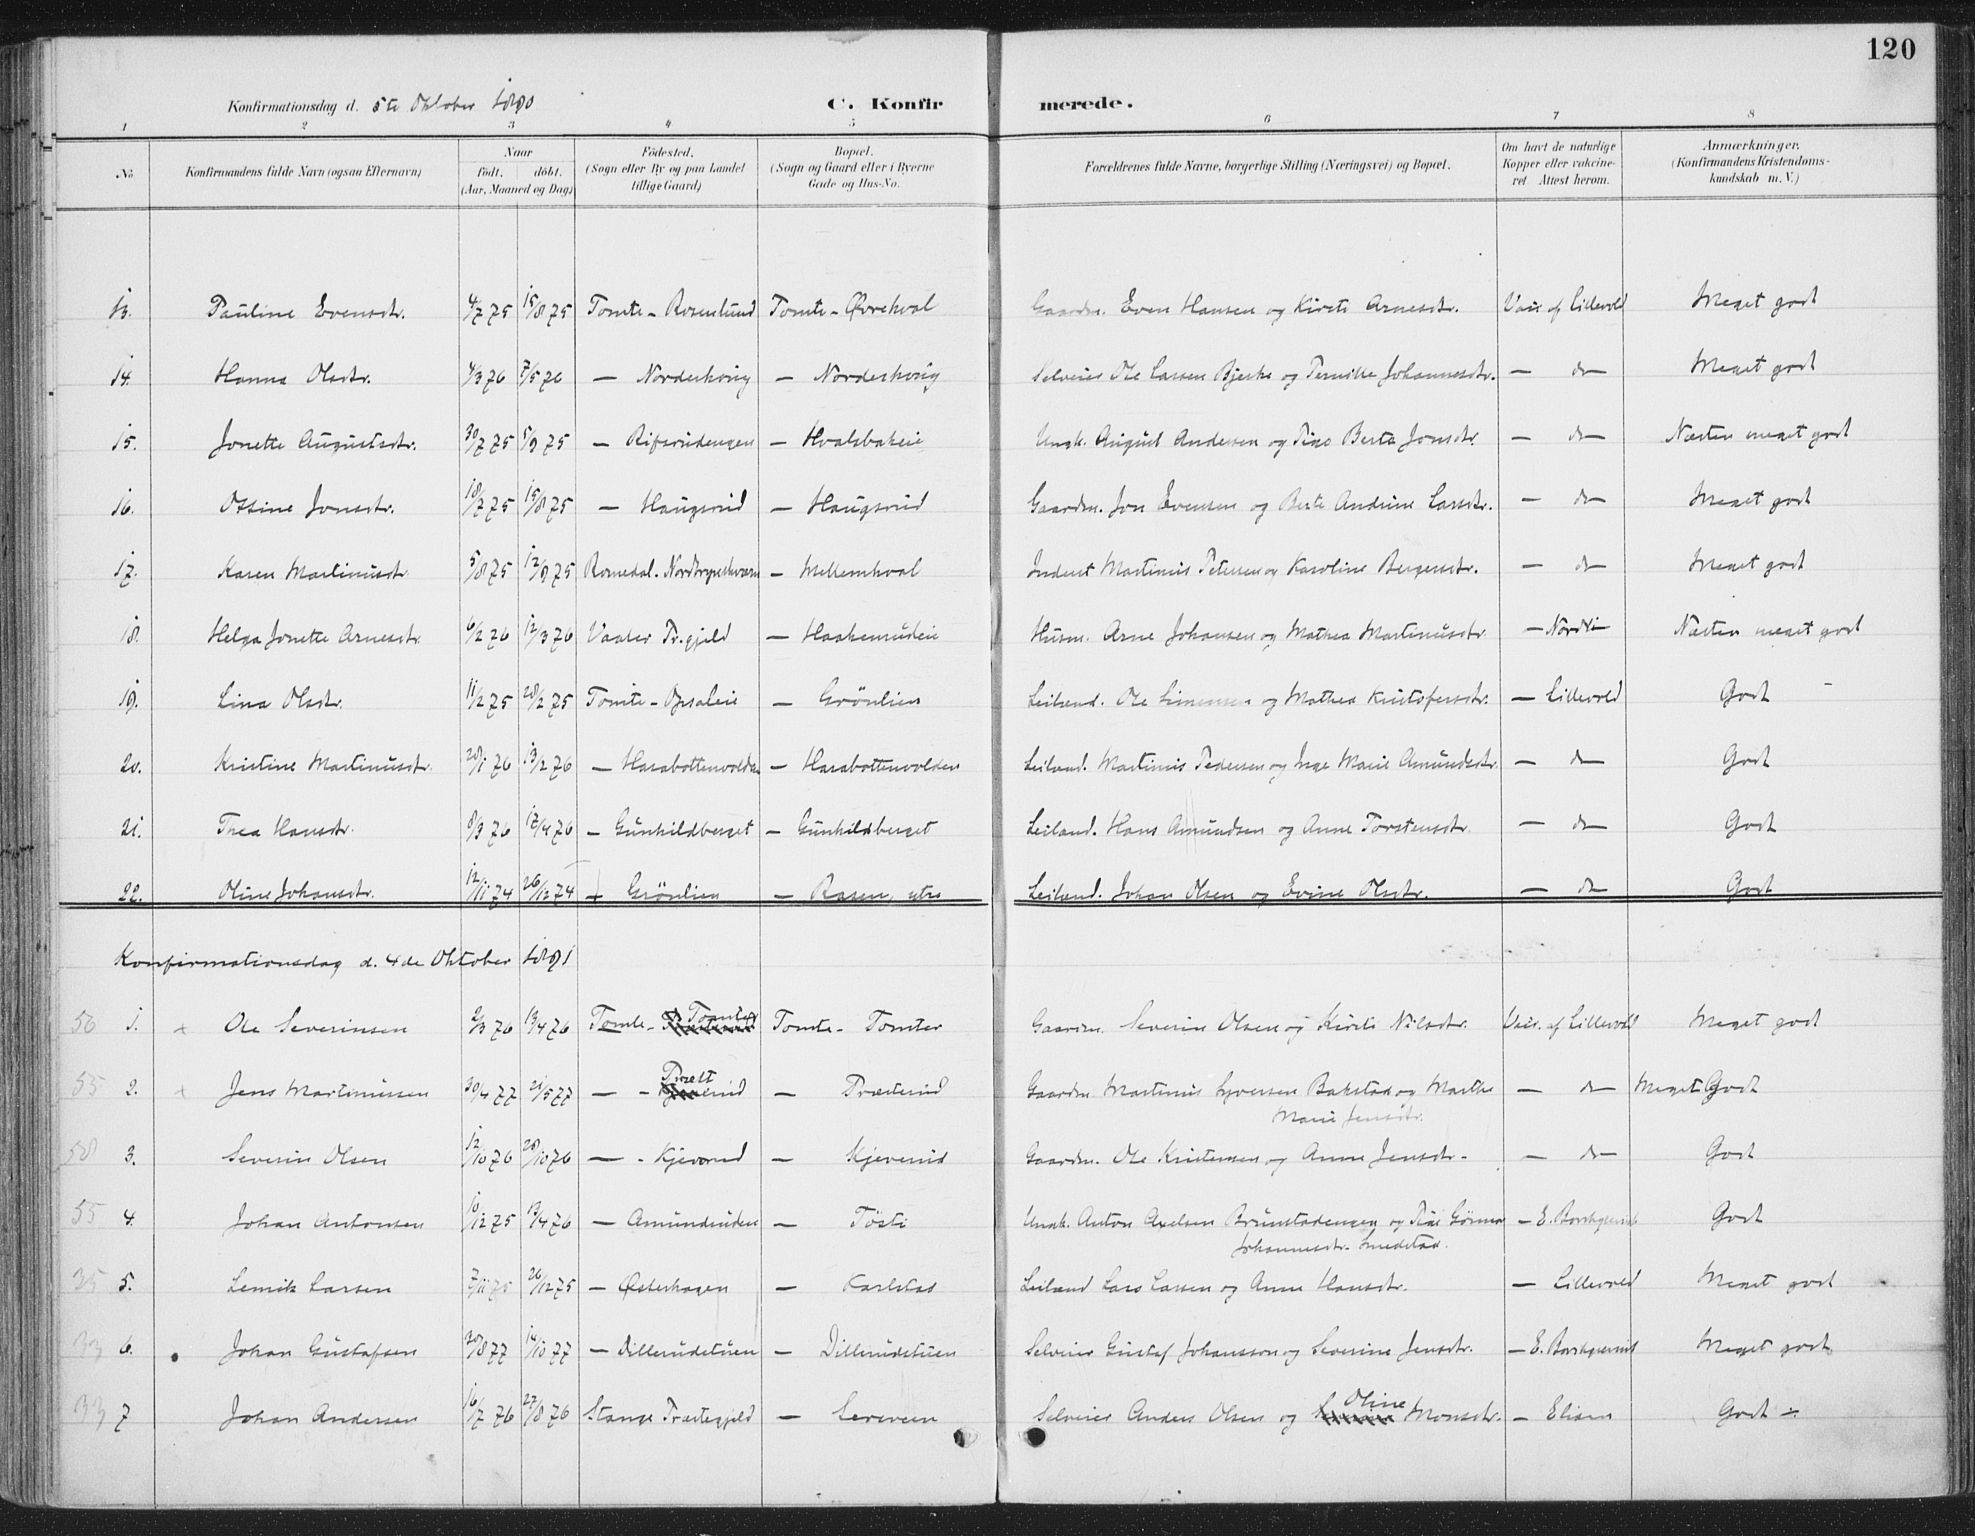 120
Konfirmationsdag d. 5te Oktober 1890 C. Konfirmerede.
1 2 3 4 5 6 7 8
No. Konfirmandens fulde Navn (ogsaa Efternavn) Naar født. døbt. (Aar, Maaned og Dag) Fødested. (Sogn eller By og paa Landet tillige Gaard) Bopæl. (Sogn og Gaard eller i Byerne Gade og Hus-No. Forældrenes fulde Navne, borgerlige Stilling (Næringsvei) og Bopæl. Om havt de naturlige Kopper eller vakcineret Attest herom. Anmærkninger. (Konfirmandens Kristendomskundskab m. V.)
13. Pauline Evensdtr. 4/7 75 15/8 75 Tomte - Rosenlund Tomte - Øvrekval Gaardm. Even Hansen og Kirsti Arnesdtr. Vacc. af Lillevold Meget godt
14. Hanna Olsdtr. 4/3 76 7/5 76 — Norderhovig — Norderhovig Selveier Ole Larsen Bjerke og Pernille Johannesdtr. — do — Meget godt
15. Jonette Augustsdtr. 30/7 75 5/9 75 — Rifsrudengen — Hvalsbakeie Ungk. August Andersen og Pige Berte Jonsdtr. — do — Næsten meget godt
16. Otine Jonsdtr. 18/7 75 15/8 75 — Haugsrud — Haugsrud Gaardm. Jon Evensen og Berte Andrine Larsdtr. — do — Meget godt
17. Karen Martinusdtr. 5/8 75 12/9 75 Romedal. — Mellemkval Inderst Martinus Petersen og Karoline Bergersdtr. — do — Meget godt
18. Helga Jonette Arnesdtr. 6/2 76 12/3 76 Vaaler Pr.gjeld — Haakenrudeie Husm. Arne Johansen og Mathea Martinusdtr. — Nordli — Næsten meget godt
19. Lina Olsdtr. 11/2 75 28/2 75 Tomte - Opsaleie — Grönlien Leilænd. Ole Simensen og Mathea Kristofersdtr. — Lillevold Godt —
20. Kristine Martinusdtr. 28/1 76 13/2 76 — Harabottenvolden — Harabottenvolden Leilænd. Martinus Pedersen og Inge Marie Amundsdtr. — do — Godt
21. Thea Hansdtr. 8/3 76 17/4 76 — Gunhildberget — Gunhildberget Leilænd. Hans Amundsen og Anne Torstensdtr. — do — Godt
22. Oline Johansdtr. 12/11 74 26/12 74 — Grönlien — Rasen, ytre Leilænd. Johan Olsen og Evine Olsdtr. — do — Godt
Konfirmationsdag d. 4de Oktober 1891
56 1. × Ole Severinsen 2/3 76 19/4 76 Tomte - Tomter Tomte - Tomter Gaardm. Severin Olsen og Kirsti Nilsdtr. Vacc. af Lillevold Meget godt
55 2. × Jens Martinussen 30/4 77 21/5 77 — - Præterud — Præsterud Gaardm Martinus Syversen Bakstad og Marthe — do — Meget Godt
Marie Jensdtr.
58 3. Severin Olsen 12/10 76 28/10 76 — - Kjeverud — Kjeverud Gaardm. Ole Kristensen og Anne Jensdtr. — do — Godt
55 4. Johan Antonsen 10/12 75 19/4 76 — Amundruden — Tösti Ungk. Anton Axelsen Brunstadengen og Pige Gunnor — E. Borchgrevink Godt
Johannesdtr. Smedstad.
35 5. Lenrik Larsen 7/11 75 26/12 75 — Østerhagen — Karlstad Leilænd Lars Larsen og Anne Hansdtr. — Lillevold Meget godt
33 6. Johan Gustafsen 30/8 77 14/10 77 — Dillerudstuen — Dillerudstuen Selveier Gustaf Johansson og Severine Jensdtr. — E. Borchgrevink Meget godt
33 7 Johan Andersen 16/7 76 27/8 76 Stange Præstegjeld — Selveier Anders Olsen og Oline Monsdtr. — Elisen Godt ÷